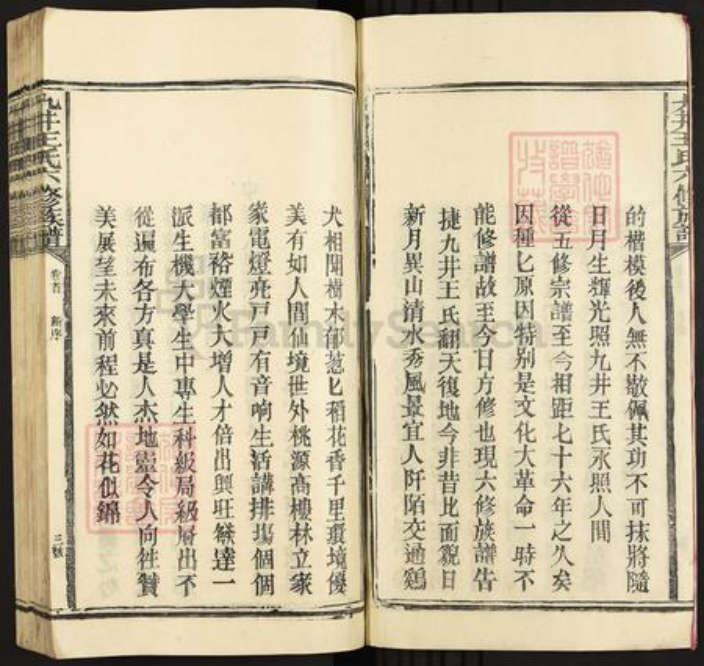 九井王氏六修族譜
的楷模後人無不敬佩其功不可抹將隨
日月生輝光照九井王氏永照人間
從五修宗譜至今相距七十六年之久矣
因種匕原因特别是文化大革命一時不
能修譜故至今日方修也現六修族譜告
捷九井王氏翻天復地今非昔比面貌日
新月異山清水秀風景宜人阡陌交通鷄
犬相聞樹木郁葱匕稻花香千里環境優
美有如人間仙境世外桃源高樓林立家
家電燈亮戸戸有音响生活講排塲個個
都富裕煙火大增人才倍出興旺發達一
派生機大學生中專生科級局級層出不
從遍布各方真是人杰地靈令人向往賛
美展望未來前程必然如花似錦
九井王氏六修族譜
卷首 新序
三號
FamilySearch